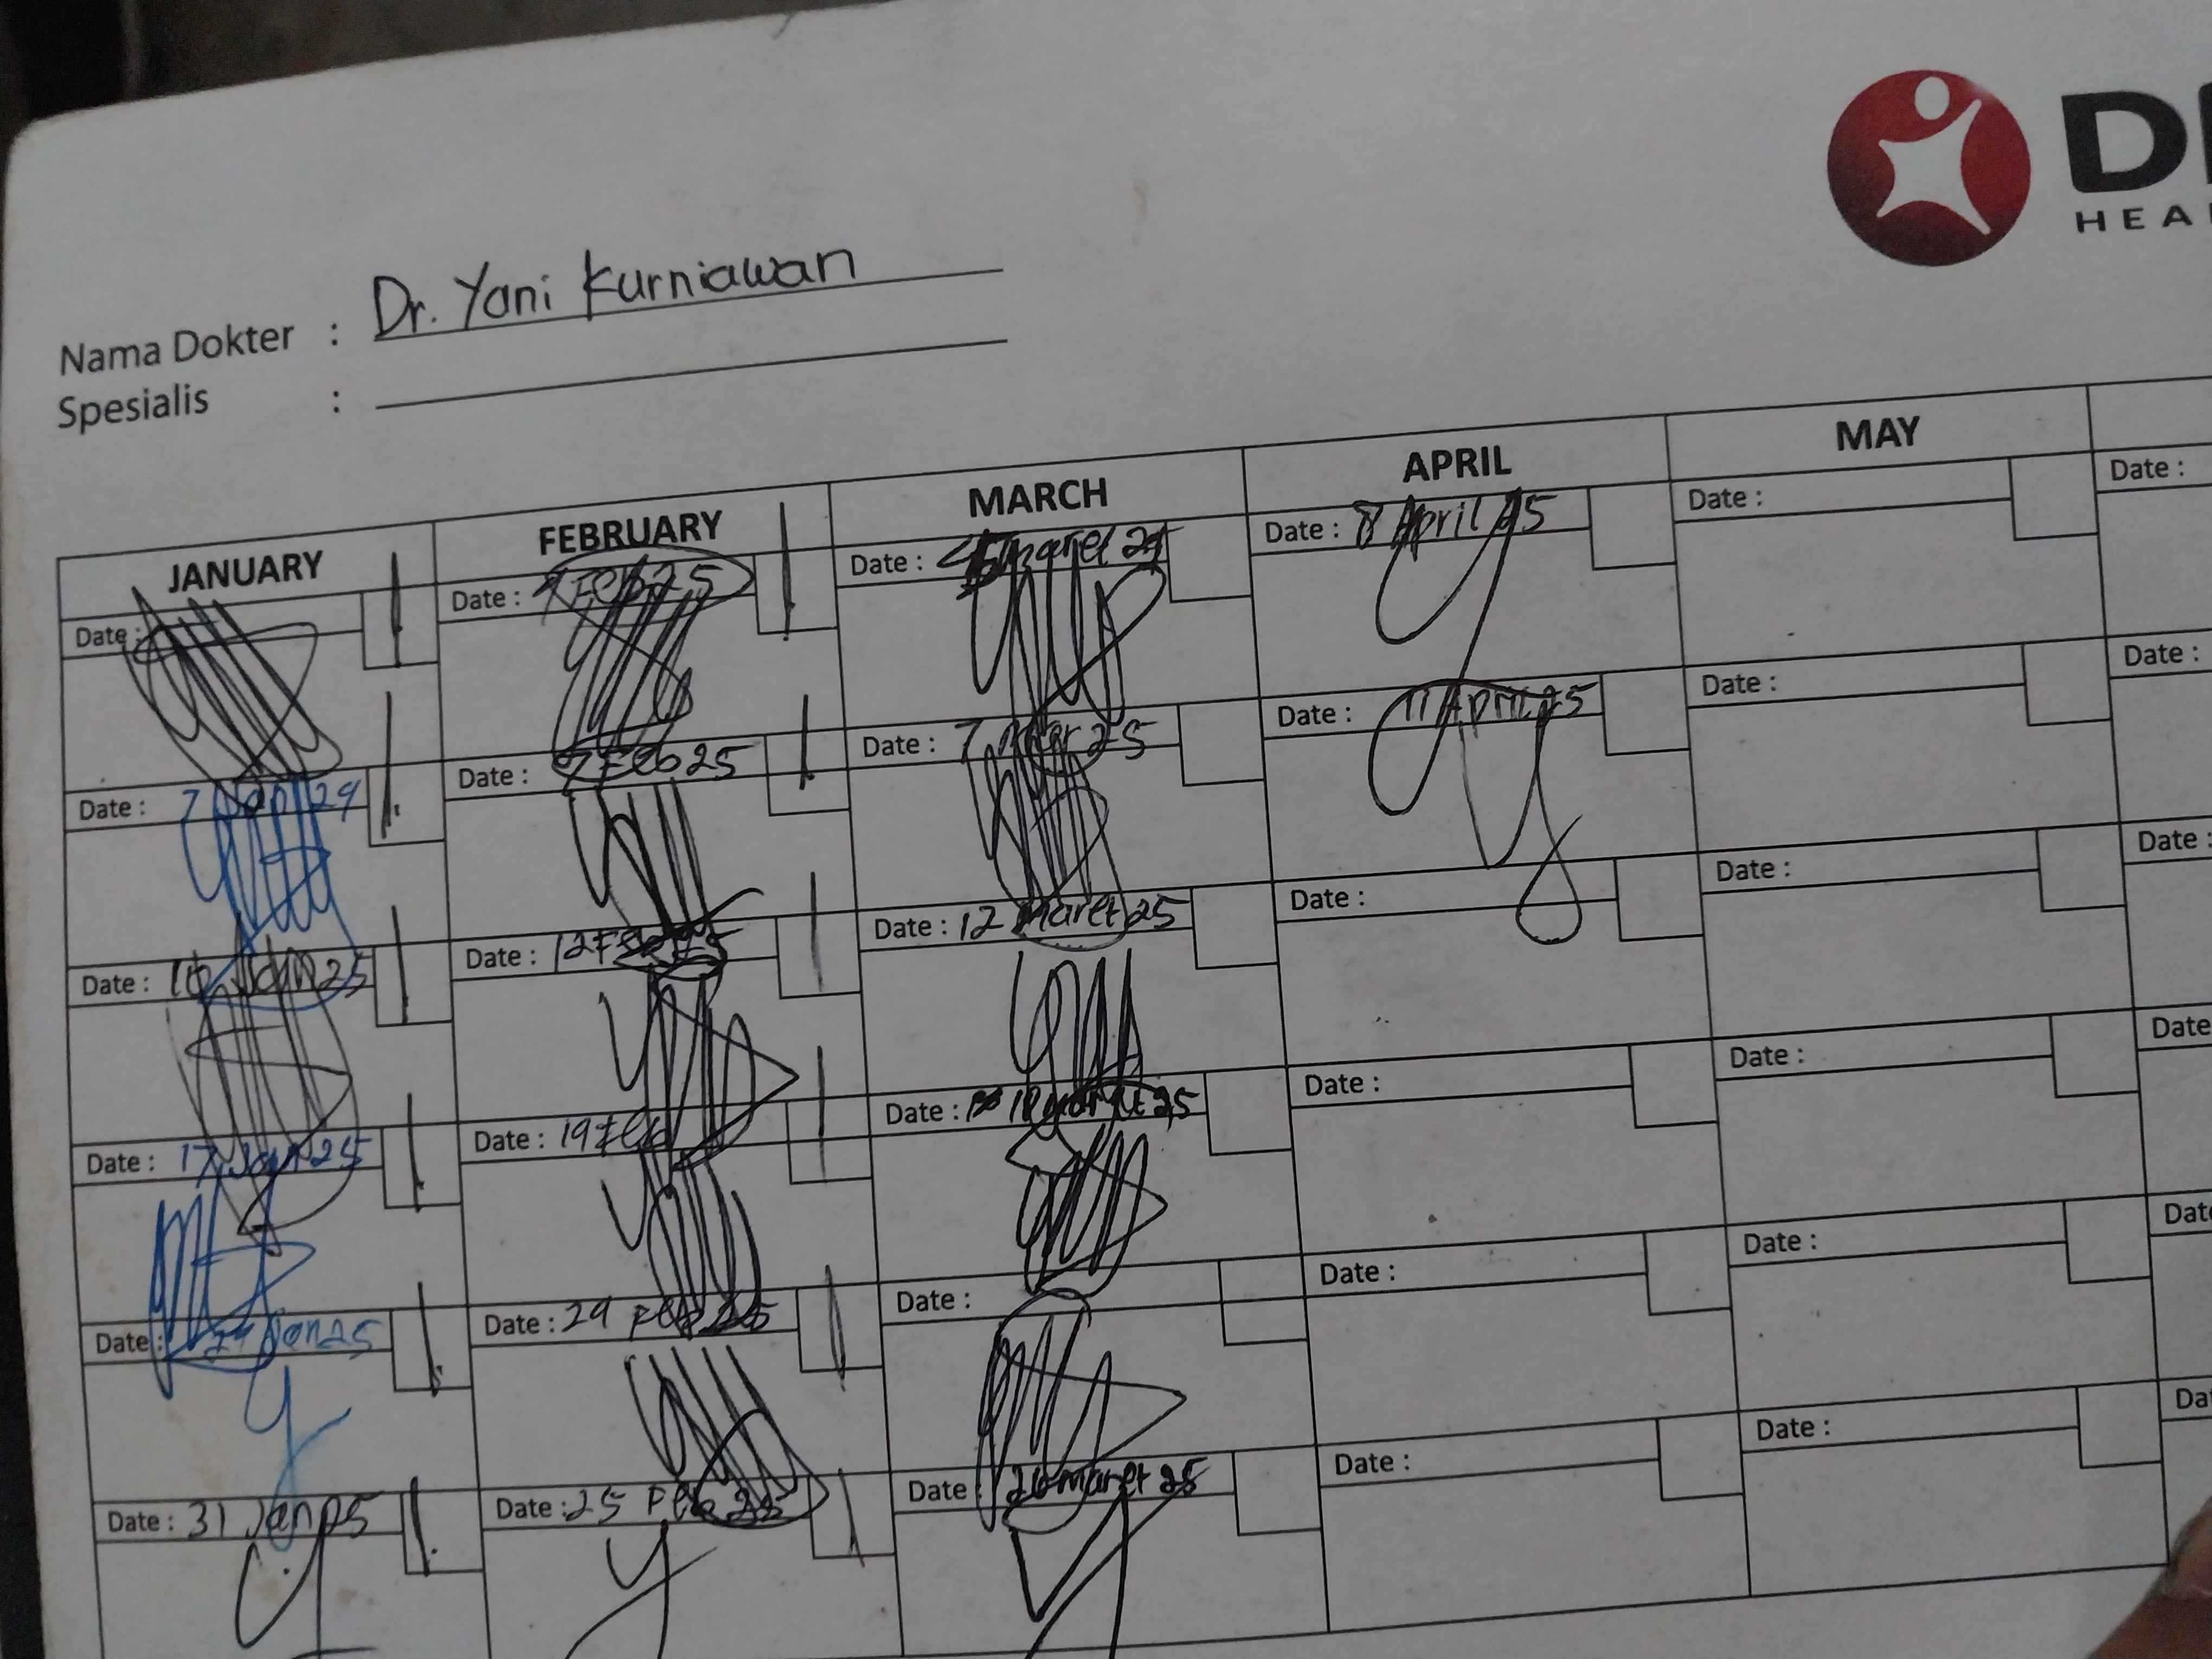 HEA
Nama Dokter : Dr. Yani Kurniawan
Spesialis :
JANUARY FEBRUARY MARCH APRIL MAY
Date : Date : Feb 25 Date : Date : 8 April 25 Date : Date :
Date : 7 Jan 24 Date : 7 Feb 25 Date : 7 Mar 25 Date : 11 April 25 Date : Date :
Date : Jan 25 Date : 12 Feb Date : 12 Maret 25 Date : Date : Date :
Date : 17 Jan 25 Date : 19 Feb Date : 18 Maret 25 Date : Date : Date
Date : 24 Jan 25 Date : Feb 25 Date : Date : Date :
Date : 31 Jan 25 Date : 25 Feb 25 Date : 26 Maret 25 Date : Date :